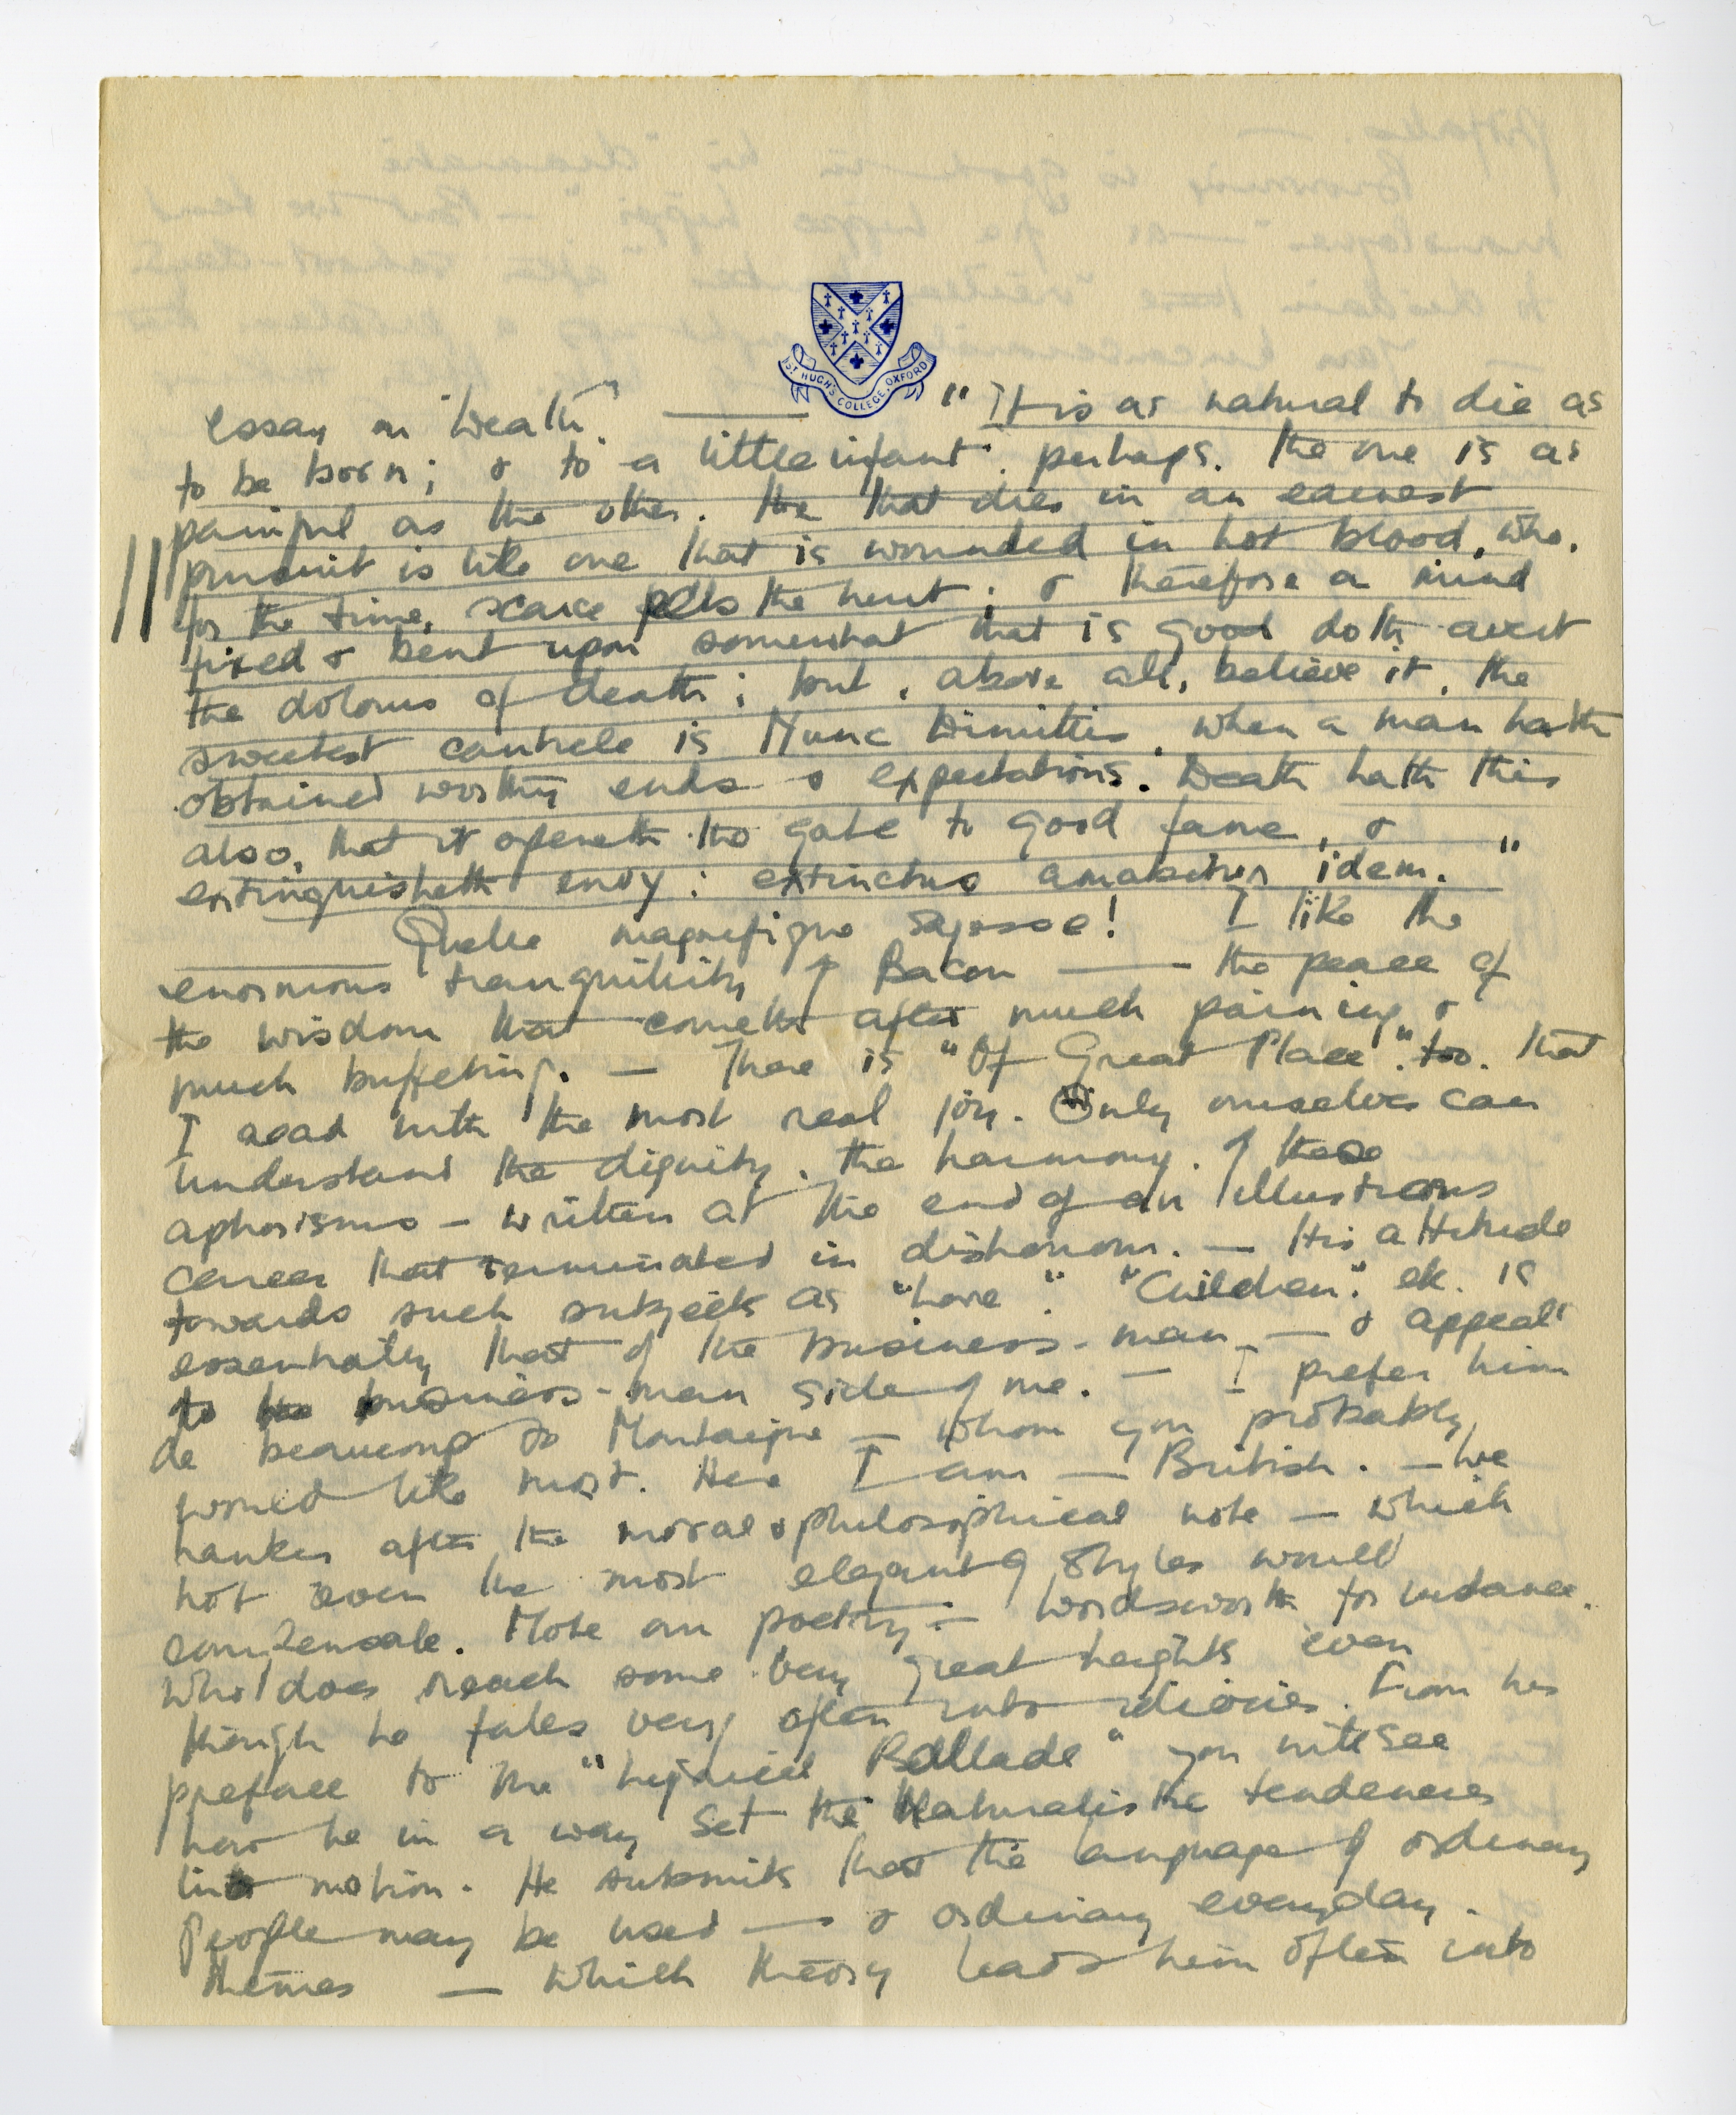 ST HUGH'S COLLEGE, OXFORD
essay on "Death". — "It is as natural to die as
to be born; & to a little infant, perhaps, the one is as
painful as the other. He that dies in an earnest
pursuit is like one that is wounded in hot blood, who,
for the time, scarce feels the hurt; & therefore a mind
fixed & bent upon somewhat that is good doth avert
the dolours of death; but, above all, believe it, the
sweetest canticle is Nunc Dimittis, when a man hath
obtained worthy ends & expectations. Death hath this
also, that it openeth the gate to good fame, &
extinguisheth envy: extinctus amabitur idem."
Quelle magnifique sagesse! I like the
enormous tranquility of Bacon — the peace of
the wisdom that cometh after much paining &
much buffeting. — There is "Of Great Place", too, that
I read with the most real joy. Only ourselves can
understand the dignity, the harmony, of these
aphorisms — written at the end of an illustrous
career that terminated in dishonour. — His attitude
towards such subjects as "Love", "Children", etc. is
essentially that of the business-man — & appeals
to the business-man side of me. — I prefer him
de beaucoup to Montaigne — whom you probably
would like most. Here I am — British. — We
hanker after the moral & philosophical note — which
not even the most elegant of styles would
compensate. Note our poetry — Wordsworth for instance,
who does reach some very great heights even
though he falls very often into idiocies. From his
preface to the "Lyrical Ballads" you will see
how he in a way set the Naturalistic tendencies
into motion. He submits that the language of ordinary
people may be used — & ordinary everyday
themes — which theory leads him often into